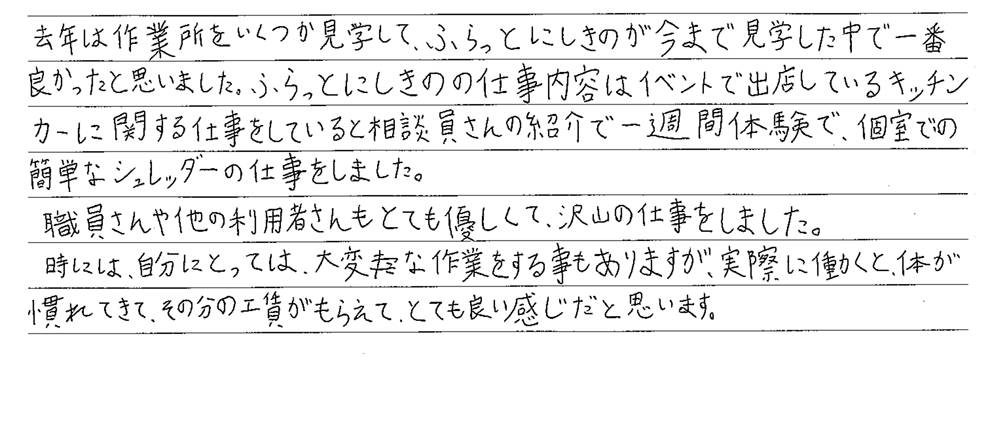 去年は作業所をいくつか見学して、ふらっとにしきのが今まで見学した中で一番
良かったと思いました。ふらっとにしきのの仕事内容はイベントで出店しているキッチン
カーに関する仕事をしていると相談員さんの紹介で一週間体験で、個室での
簡単なシュレッダーの仕事をしました。
職員さんや他の利用者さんもとても優しくて、沢山の仕事をしました。
時には、自分にとっては、大変な作業をする事もありますが、実際に働くと、体が
慣れてきて、その分の工賃がもらえて、とても良い感じだと思います。